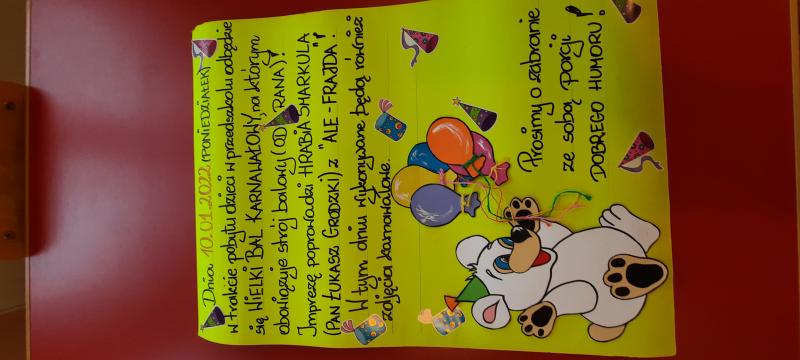 Dnia 10.01.2022 (PONIEDZIAŁEK)
w trakcie pobytu dzieci w przedszkolu odbędzie
się WIELKI BAL KARNAWAŁOWY, na którym
obowiązuje strój balowy (OD RANA)!
Imprezę poprowadzi HRABIA SMARKULA
(PAN ŁUKASZ GRODZKI) z "ALE-FRAJDA"!
W tym dniu wykonywane będą również
zdjęcia karnawałowe.
Prosimy o zabranie
ze sobą porcji
DOBREGO HUMORU!